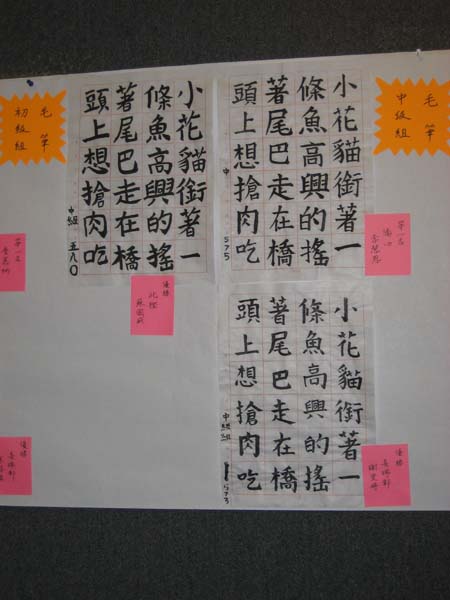 毛筆
中級組
小花貓銜著一
條魚高興的搖
著尾巴走在橋
頭上想搶肉吃
中
575
第一名
小花貓銜著一
條魚高興的搖
著尾巴走在橋
頭上想搶肉吃
中級組
1573
優勝
喜瑞都
小花貓銜著一
條魚高興的搖
著尾巴走在橋
頭上想搶肉吃
中組 五八0
優勝
毛筆
初級組
第一名
優勝
喜瑞都